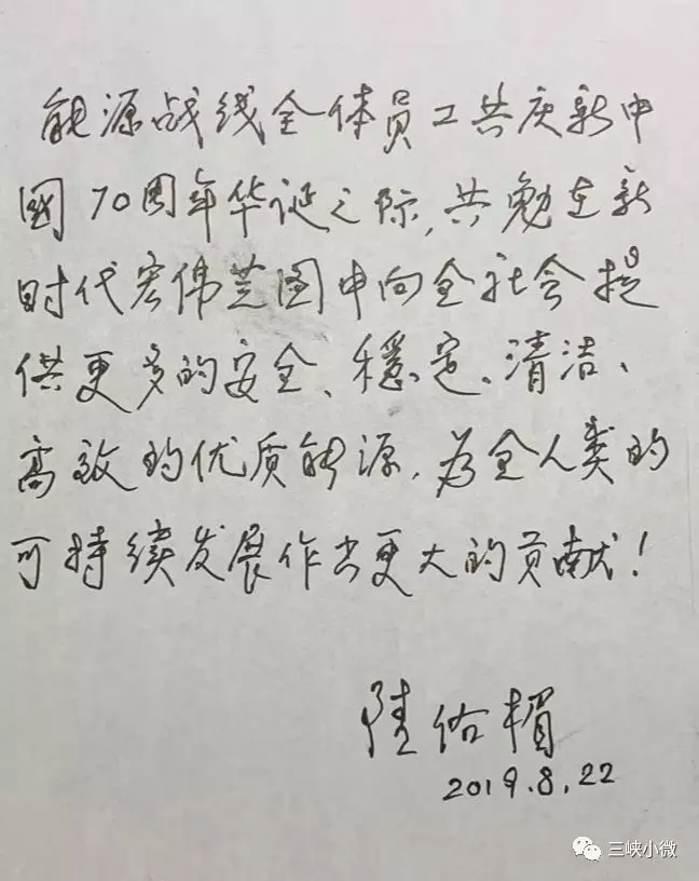 能源战线全体员工共庆新中
國70周年华诞之际,共勉在新
时代宏伟蓝图中向全社会提
供更多的安全、穩定、清洁、
高效的优质能源,为全人类的
可持续发展作出更大的贡献!
陸佑楣
2019.8.22
三峡小微